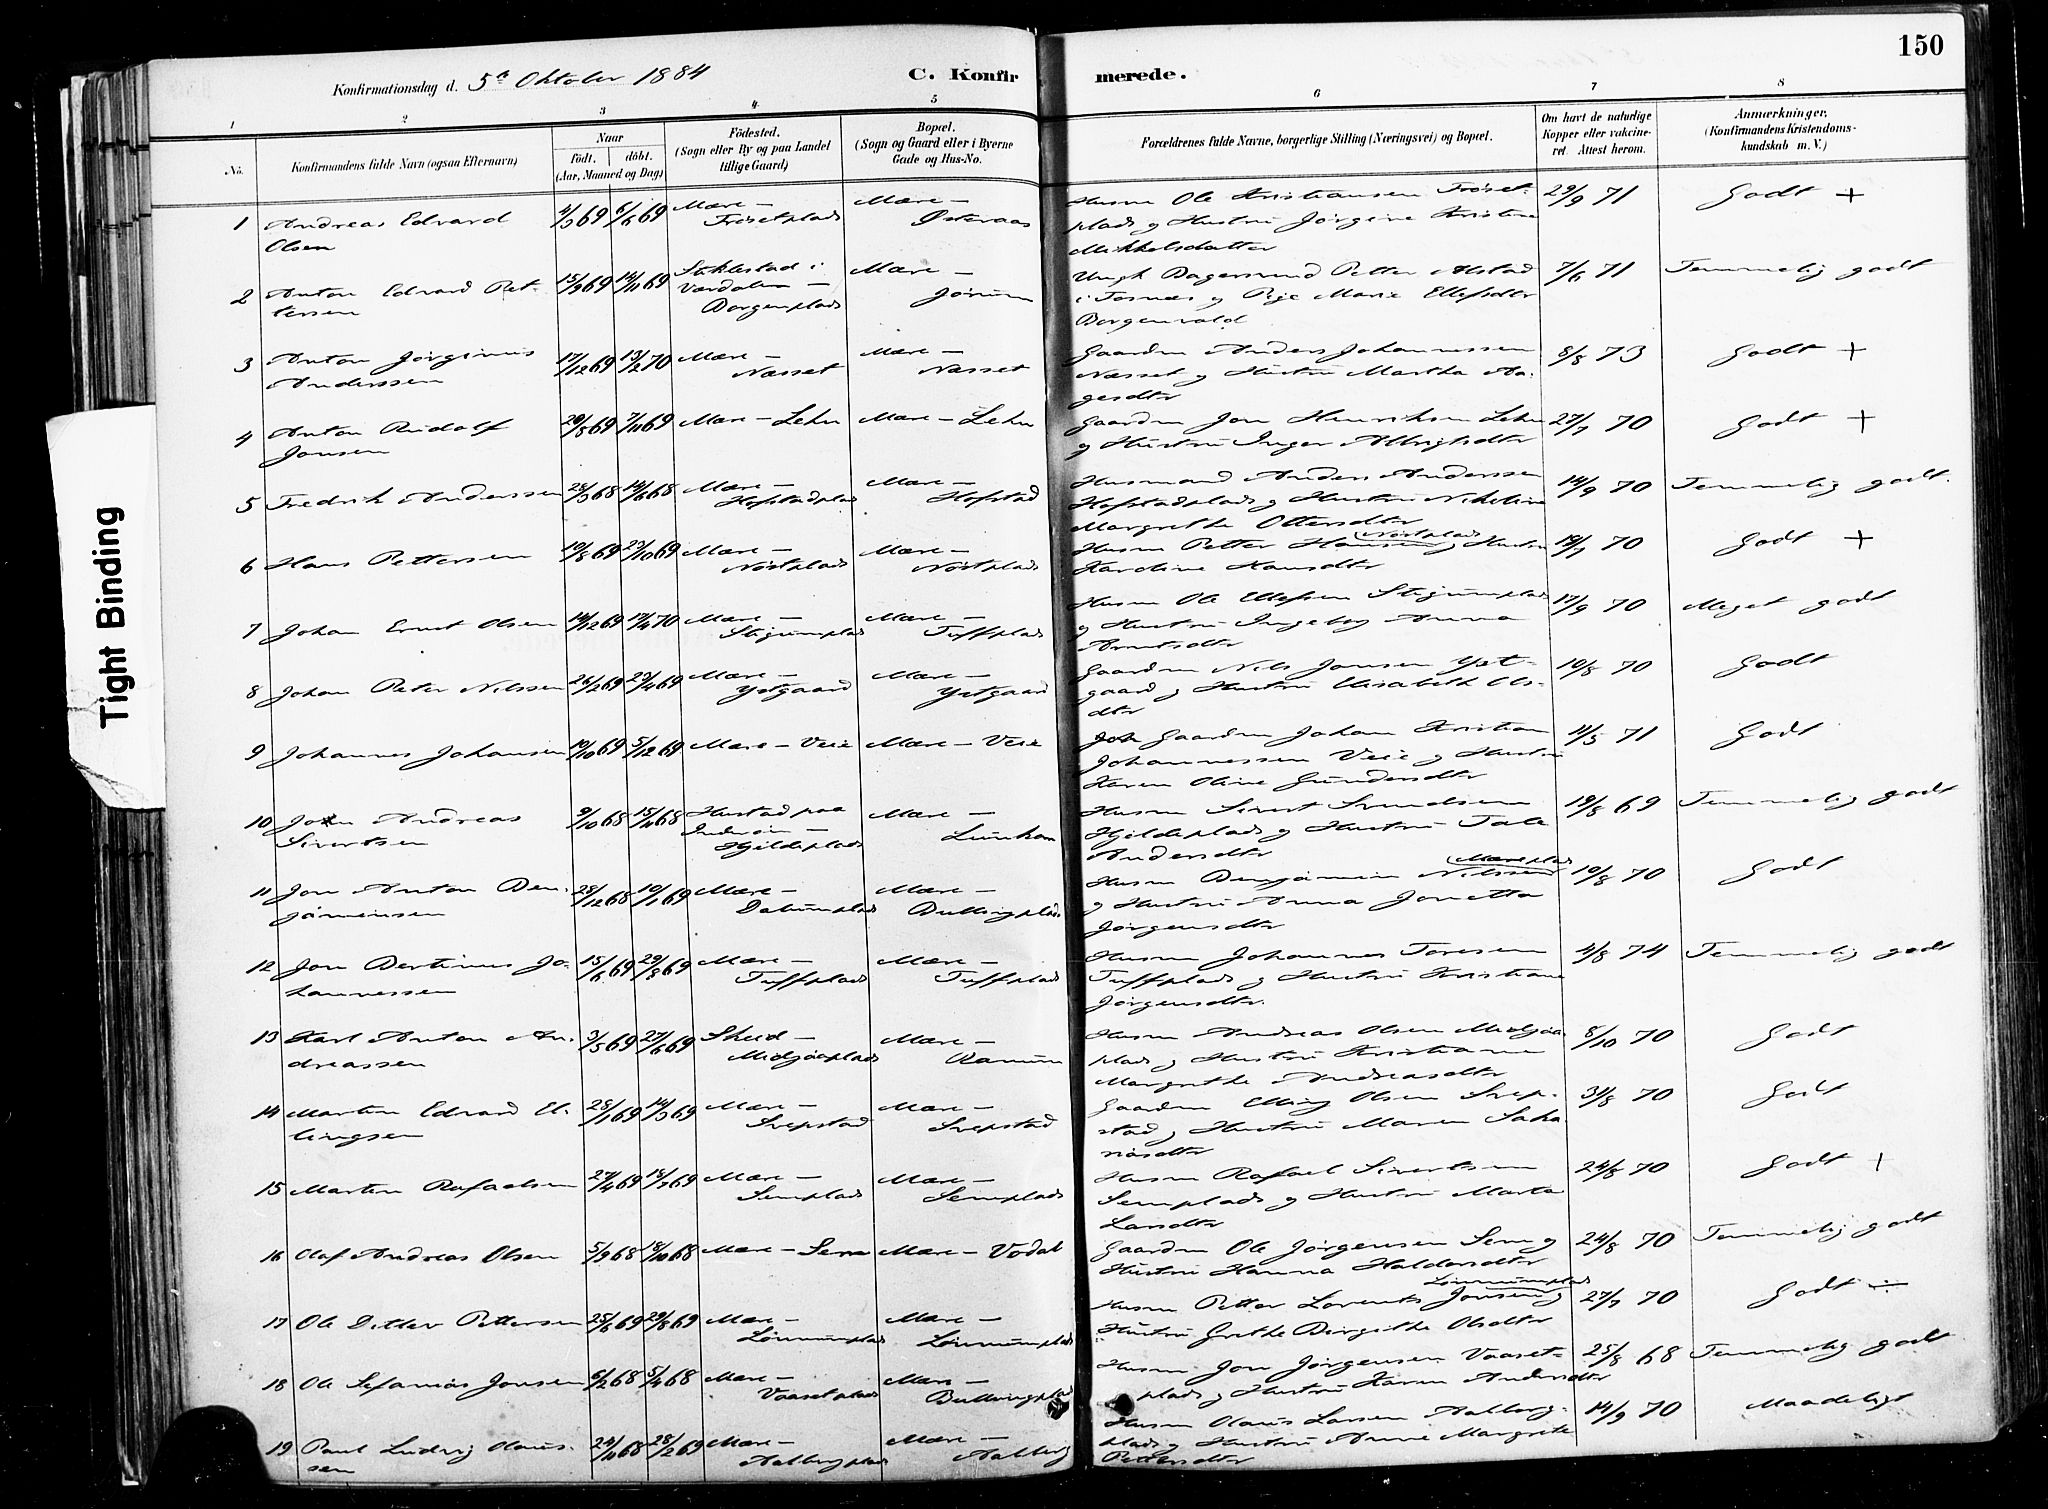 150
Konfirmationsdag d. 5te Oktober 1884
C. Konfirmerede.
1 2 3 4 5 6 7 8
No.
Konfirmandens fulde Navn (ogsaa Efternavn)
Naar
født. døbt.
(Aar, Maaned og Dag)
Födested.
(Sogn eller By og paa Landet
tillige Gaard)
Bopæl.
(Sogn og Gaard eller i Byerne
Gade og Hus-No.
Forældrenes fulde Navne, borgerlige Stilling (Næringsvei) og Bopæl.
Om havt de naturlige
Kopper eller vakcine-
ret. Attest herom.
Anmærkninger.
(Konfirmandens Kristendoms-
kundskab m. V.)
Tight Binding
1 Andreas Edvard Olsen 4/3 69 6/6 69 Mære – Trösetplads Mære – Østeraas Husm Ole Kristiansen Tröset-
plads og Hustru Jørgine Kristine
Mikkelsdatter 29/9 71 Godt +
2 Anton Edvard Pet-
tersen 15/9 69 14/11 69 Stiklestad i
Værdalen –
Borgenplads Mære – Jörum Ungk Petter Alstad
i Fosnæs og Marie
7/6 71 Temmelig godt
3 Anton Jørginus
Anderssen 17/12 69 13/2 70 Mære – Næsset Mære – Næsset Gaardm Anders Johannessen
Næsset og Hustru Martha Aa-
gesdtr 8/8 73 Godt +
4 Anton Rudolf
Jonsen 20/8 69 7/11 69 Mære – Lehn Mære – Lehn Gaardm Jon Henriksen Lehn
og Hustru Inger Albrigtsdtr 27/7 70 Godt +
5 Fredrik Anderssen 28/3 68 14/6 68 Mære – Hofstadplads Mære – Hofstad Husmand Anders Anderssen
Hofstadplads og Hustru Nikoline
Margrethe Ottersdtr 14/9 70 Temmelig godt.
6 Hans Pettersen 19/8 69 23/10 69 Mære – Nöstplads Mære – Nöstplads Husm Petter Hansen Nöstplads og Hustru
Karoline Hansdtr 19/7 70 Godt +
7 Johan Ernst Olsen 14/12 69 17/4 70 Mære – Stigumplads Mære – Tuffplads Husm Ole Ellefsen Stigumplads
og Hustru Ingeborg Anna
Arntsdtr 17/9 70 Meget godt
8 Johan Peter Nilssen 26/2 69 23/4 69 Mære – Ystgaard Mære – Ystgaard Gaardm Nils Jonsen Yst-
gaard og Hustru Elisabeth Ols-
dtr 19/8 70 Godt
9 Johannes Johansen 10/10 69 5/12 69 Mære – Veie Mære – Veie Gaardm Johan Kristian
Johannessen Veie og Hustru
Karen Oline Gundersdtr 11/5 71 Godt
10 Jon Andreas
Sivertsen 9/10 68 15/11 68 Hustad paa
Inderöen –
Hjildeplads Mære – Husm Sivert Svendsen
Hjildeplads og Hustru
Andersdtr 19/8 69 Temmelig godt
11 Jon Anton Ben-
jaminsen 28/12 68 10/1 69 Mære – Dalumplads Mære – Bullingplads Husm Benjamin Nilssen Mæreplads
og Hustru Anna Jonetta
Jørgensdtr 19/8 70 Godt
12 Jon Bertinus Jo-
hannessen 15/6 69 29/8 69 Mære – Tuffplads Mære – Tuffplads Husm Johannes Toresen
Tuffplads og Hustru Kristiane
Jørgensdtr. 4/8 74 Temmelig godt
13 Karl Anton An-
dreassen 3/5 69 27/6 69 Skeid – Midjöaplads Mære – Ranum Husm Andreas Olsen Midjöa-
plads og Hustru Kristiane
Margrethe Andreasdtr 8/10 70 Godt
14 Martin Edvard El-
lingsen 28/1 69 14/3 69 Mære – Svepstad Mære – Svepstad Gaardm Elling Olsen Svep-
stad og Hustru Maren Saka-
riasdtr 31/8 70 Godt
15 Martin Rafaelsen 27/4 69 18/7 69 Mære – Semplads Mære – Semplads Husm Rafael Sivertsen
Semplads og Hustru Marta
Larsdtr 24/8 70 Godt +
16 Olaf Andreas Olsen 5/9 68 18/10 68 Mære – Sem Mære – Vodal Gaardm Ole Jørgensen Sem og
Hustru Hanna Haldorsdtr 24/8 70 Temmelig godt
17 Ole Ditlev Pettersen 25/6 69 29/8 69 Mære – Lönnumplads Mære – Lönnumplads Husm Petter Lorents Jonsen Lönnumplads og
Hustru Grethe Birgithe Olsdtr 27/7 70 Godt
18 Ole Sefanias Jonsen 6/2 68 5/4 68 Mære – Vaasetplads Mære – Bullingplads Husm Jon Jørgensen Vaaset-
plads og Hustru Karen Andersdtr 25/8 68 Temmelig godt
19 Paul Ludvig Olaus-
sen 24/11 68 28/2 69 Mære – Aalbergplads Mære – Aalberg Husm Olaus Larsen Aalberg-
plads og Hustru Anne Margrete
Pettersdtr 14/9 70 Maadeligt